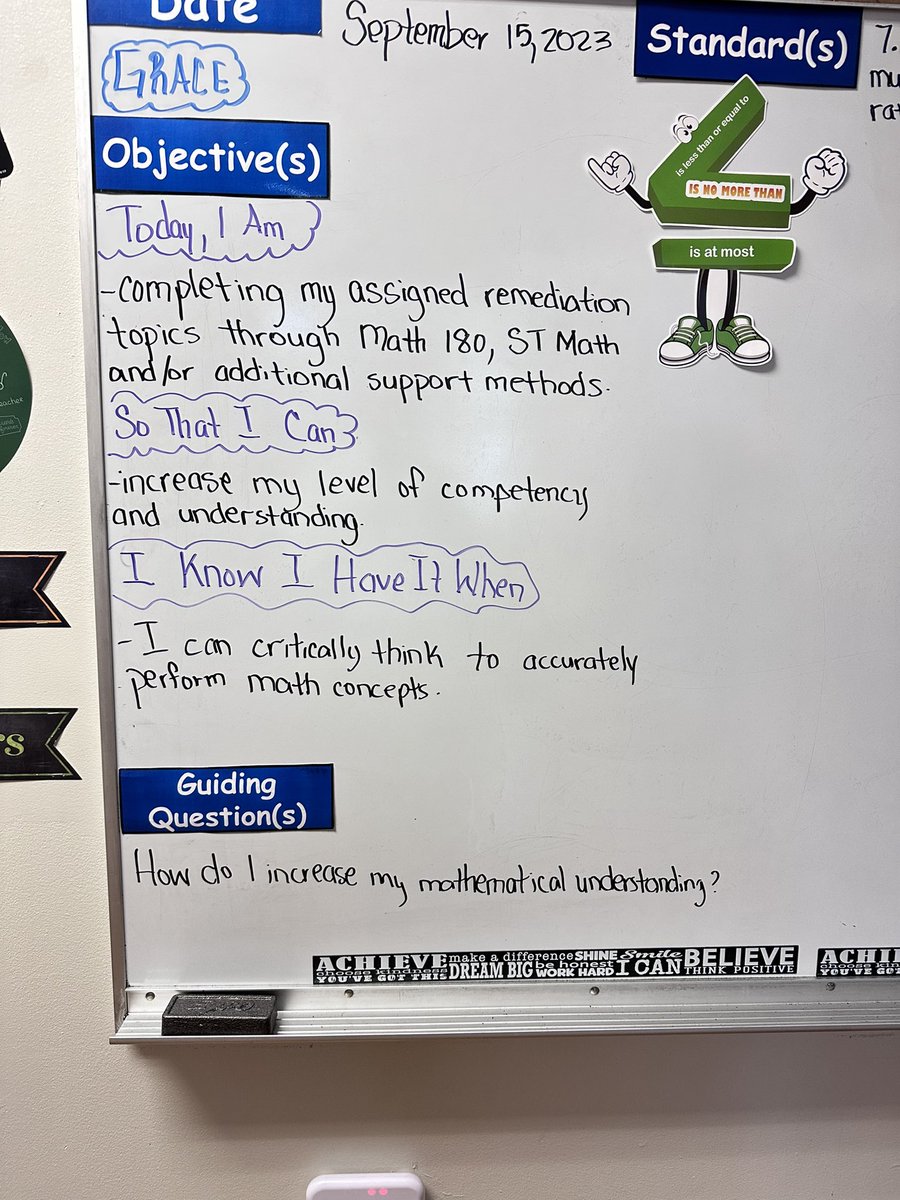 Date
September 15, 2023
Standard(s)
7.
GRACE
Objective(s)
is less than or equal to
IS NO MORE THAN
is at most
Today, I Am
-completing my assigned remediation
topics through Math 180, ST Math
and/or additional support methods.
So That I Can
-increase my level of competency
and understanding.
I Know I Have It When
-I can critically think to accurately
perform math concepts.
Guiding
Question(s)
How do I increase my mathematical understanding?
ACHIEVE make a difference SHINE Smile BELIEVE
choose kindness DREAM BIG be honest I CAN THINK POSITIVE
YOU'VE GOT THIS WORK HARD